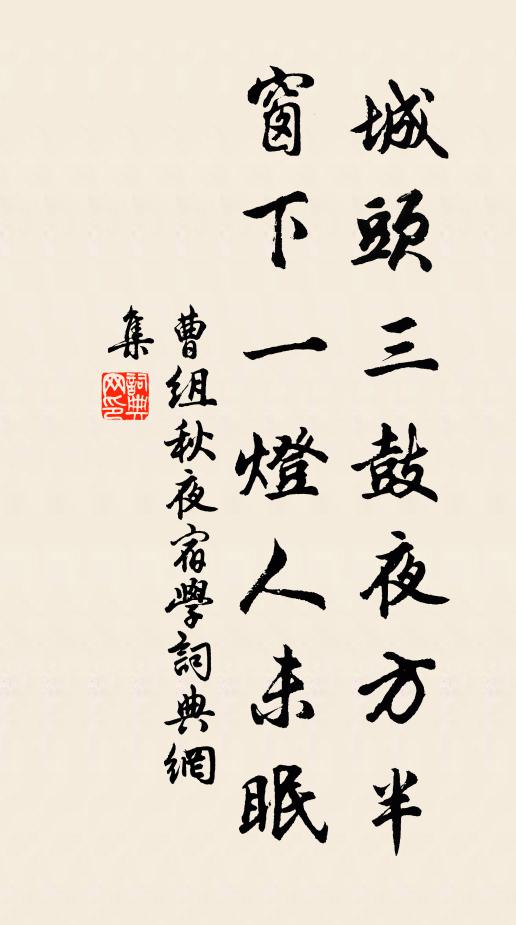 城頭三鼓夜方半
窗下一燈人未眠
曹組秋夜宿學詞典網
集
詞典網印